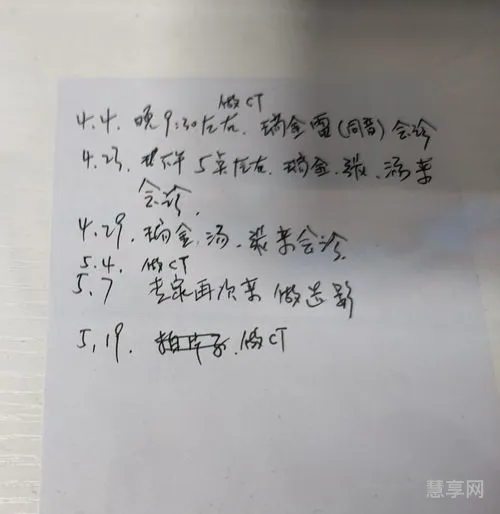 做CT
4.4. 晚9:30左右. 瑞金雷(同音)会诊
4.23. 下午5点左右. 瑞金. 张. 汤来
会诊.
4.29. 瑞金. 汤. 张来会诊.
5.4. 做CT
5.7 专家再次来 做造影
5.19. 做CT
慧享网